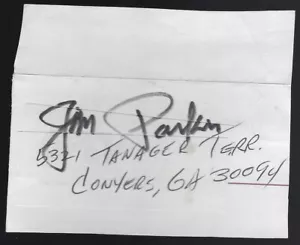 Jim Parkin
5321 TANAGER TERR.
CONYERS, GA 30094